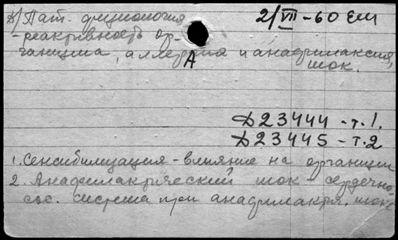 А) Пат. физиология 2/VII-60 Еш
- реактивность ор-
ганизма, аллергия и анафилаксия,
А
шок.
Д23444-т.1.
Д23445-т.2
1. Сенсибилизация - влияние на организм
2. Анафилактический шок - сердечно
сос. система при анафилакт. шоке